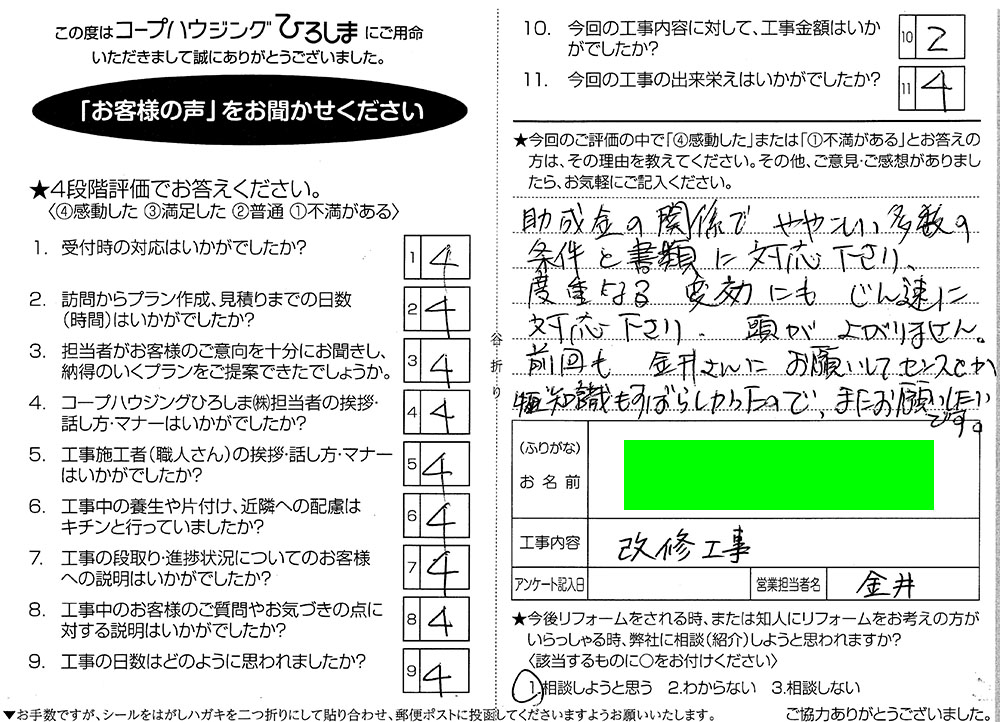 この度はコープハウジングひろしまにご用命
いただきまして誠にありがとうございました。
「お客様の声」をお聞かせください
★4段階評価でお答えください。
〈④感動した ③満足した ②普通 ①不満がある〉
1. 受付時の対応はいかがでしたか?
1 4
2. 訪問からプラン作成、見積りまでの日数
(時間)はいかがでしたか?
2 4
3. 担当者がお客様のご意向を十分にお聞きし、
納得のいくプランをご提案できたでしょうか。
3 4
4. コープハウジングひろしま㈱担当者の挨拶・
話し方・マナーはいかがでしたか?
4 4
5. 工事施工者(職人さん)の挨拶・話し方・マナー
はいかがでしたか?
5 4
6. 工事中の養生や片付け、近隣への配慮は
キチンと行っていましたか?
6 4
7. 工事の段取り・進捗状況についてのお客様
への説明はいかがでしたか?
7 4
8. 工事中のお客様のご質問やお気づきの点に
対する説明はいかがでしたか?
8 4
9. 工事の日数はどのように思われましたか?
9 4
谷折り
10. 今回の工事内容に対して、工事金額はいか
がでしたか?
10 2
11. 今回の工事の出来栄えはいかがでしたか?
11 4
★今回のご評価の中で「④感動した」または「①不満がある」とお答えの
方は、その理由を教えてください。その他、ご意見・ご感想がありまし
たら、お気軽にご記入ください。
助成金の関係で ややこしい多数の
条件と書類に対応下さり、
度重なる 変効にも じん速に
対応下さり、頭が上がりません。
前回も 金井さんに お願いしてセンスとか
知識もすばらしかったので、またお願いしたい
です。
(ふりがな)
お名前
工事内容 改修工事
アンケート記入日 営業担当者名 金井
★今後リフォームをされる時、または知人にリフォームをお考えの方が
いらっしゃる時、弊社に相談(紹介)しようと思われますか?
〈該当するものに○をお付けください〉
1.相談しようと思う 2.わからない 3.相談しない
▼お手数ですが、シールをはがしハガキを二つ折りにして貼り合わせ、郵便ポストに投函してくださいますようお願いいたします。
ご協力ありがとうございました。